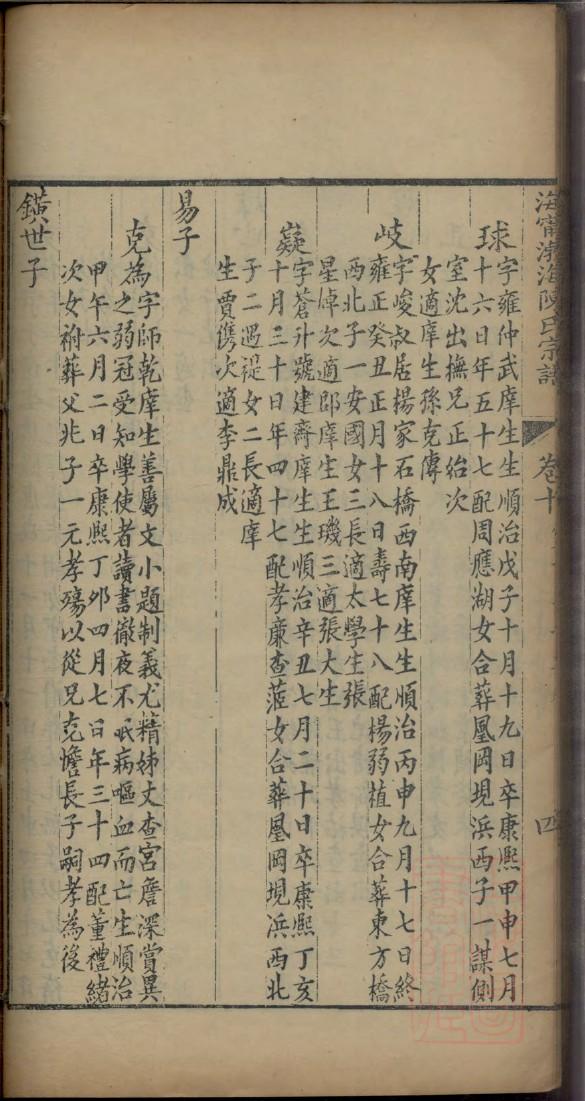 海寧渤海陳氏宗譜
卷十
四
球字雍仲武庠生生順治戊子十月十九日卒康熙甲申七月
十六日年五十七配周應湖女合葬鳳岡堽浜西子一謀側
室沈出撫兄正始次
女適庠生孫克傳
岐字峻叔居楊家石橋西南庠生生順治丙申九月十七日終
雍正癸丑正月十八日壽七十八配楊弱植女合葬東方橋
西北子一安國女三長適太學生張
星焯次適郎庠生王璣三適張大生
嶷字蒼升號建齋庠生生順治辛丑七月二十日卒康熙丁亥
十月三十日年四十七配孝廉查蒞女合葬鳳岡堽浜西北
子二遇禔女二長適庠
生賈儁次適李鼎成
易子
克為字師乾庠生善屬文小題制義尤精姊丈查宮詹深賞異
之弱冠受知學使者讀書徹夜不眠病嘔血而亡生順治
甲午六月二日卒康熙丁卯四月七日年三十四配董禮緒
次女祔葬父兆子一元孝殤以從兄克憺長子嗣孝為後
鐄世子